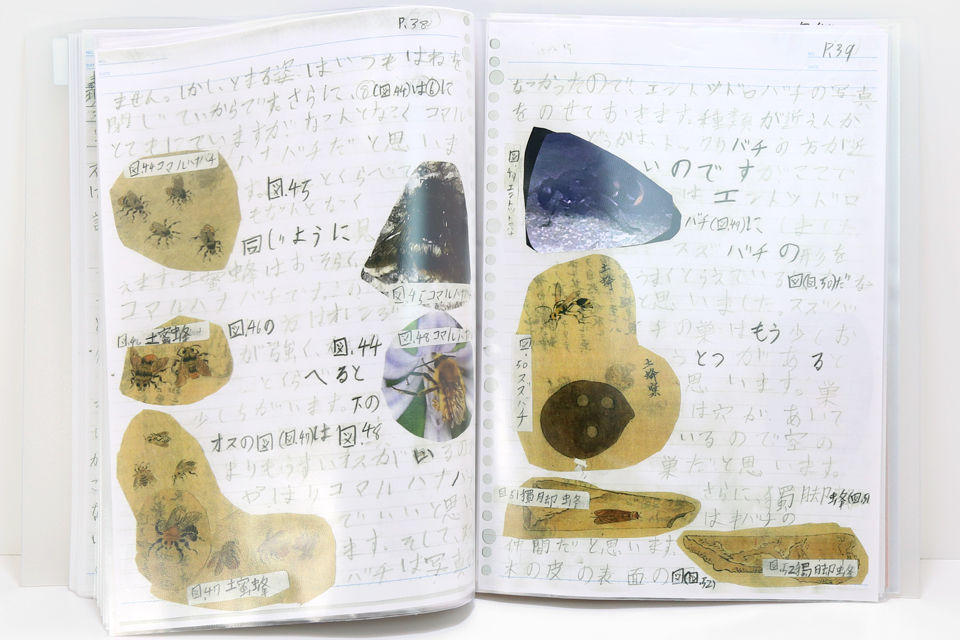 P.38
ません。しかし、とまる姿はいつもはねを
閉じているからです。さらに、
とてもにていますがなんとなくコマル
ハナバチだと思いま
図.44コマルハナバチ
す。図.45
とくらべて
もなんとなく
同じように見
えます。土蜜蜂はお
コマルハナバチです。この
図.45コマルハナバチ
方はオレンジ
図.46 土蜜蜂
図.46の
が強く、
図.44
とくらべると
図.48コマルハナ
少しちがいます。下の
オスの図(図.47)は図.48
よりもうすいオスがいる
やはりコマルハナバ
でいいと思い
ます。そして、
バチは写真
図.47 土蜜蜂
P.39
なかったので、エントツドロバチの写真
をのせておきます。種類が近えんか
どうかは、トックリバチの方が近
いのですがここで
はエントツドロ
バチ(図.49)に しました。
スズバチの形を
うまくとらえている図(図.50)だな
と思いました。スズバ
チの巣はもう少しお
うとつがある
思います。巣
は穴があいて
いるので空の
巣だと思います。
土蜂
土蜂窠
図.50 スズバチ
さらに、獨脚蜂(図.51)
はキバチの
図.51獨脚蜂
仲間だと思います。
木の皮の表面の図(図.52)
図.52獨脚蜂